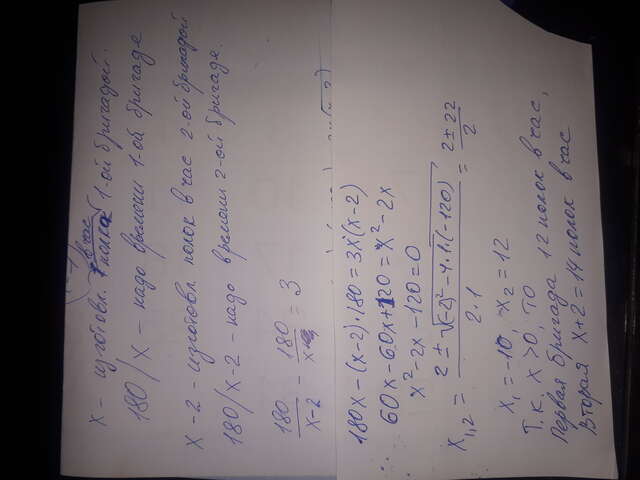 в час
х - изготовл. полка 1-ой бригадой.
180/х - надо времени 1-ой бригаде
х-2 - изготовл полок в час 2-ой бригадой
180/х-2 - надо времени 2-ой бригаде.
180/х-2 - 180/х = 3
180х-(х-2)·180=3х(х-2)
60х-60х+120=х²-2х
х²-2х-120=0
х₁,₂ = 2±√(-2)²-4·1·(-120)/2·1 = 2±22/2
х₁=-10, х₂=12
Т.к. х>0, то
Первая бригада 12 полок в час,
Вторая х+2=14 полок в час